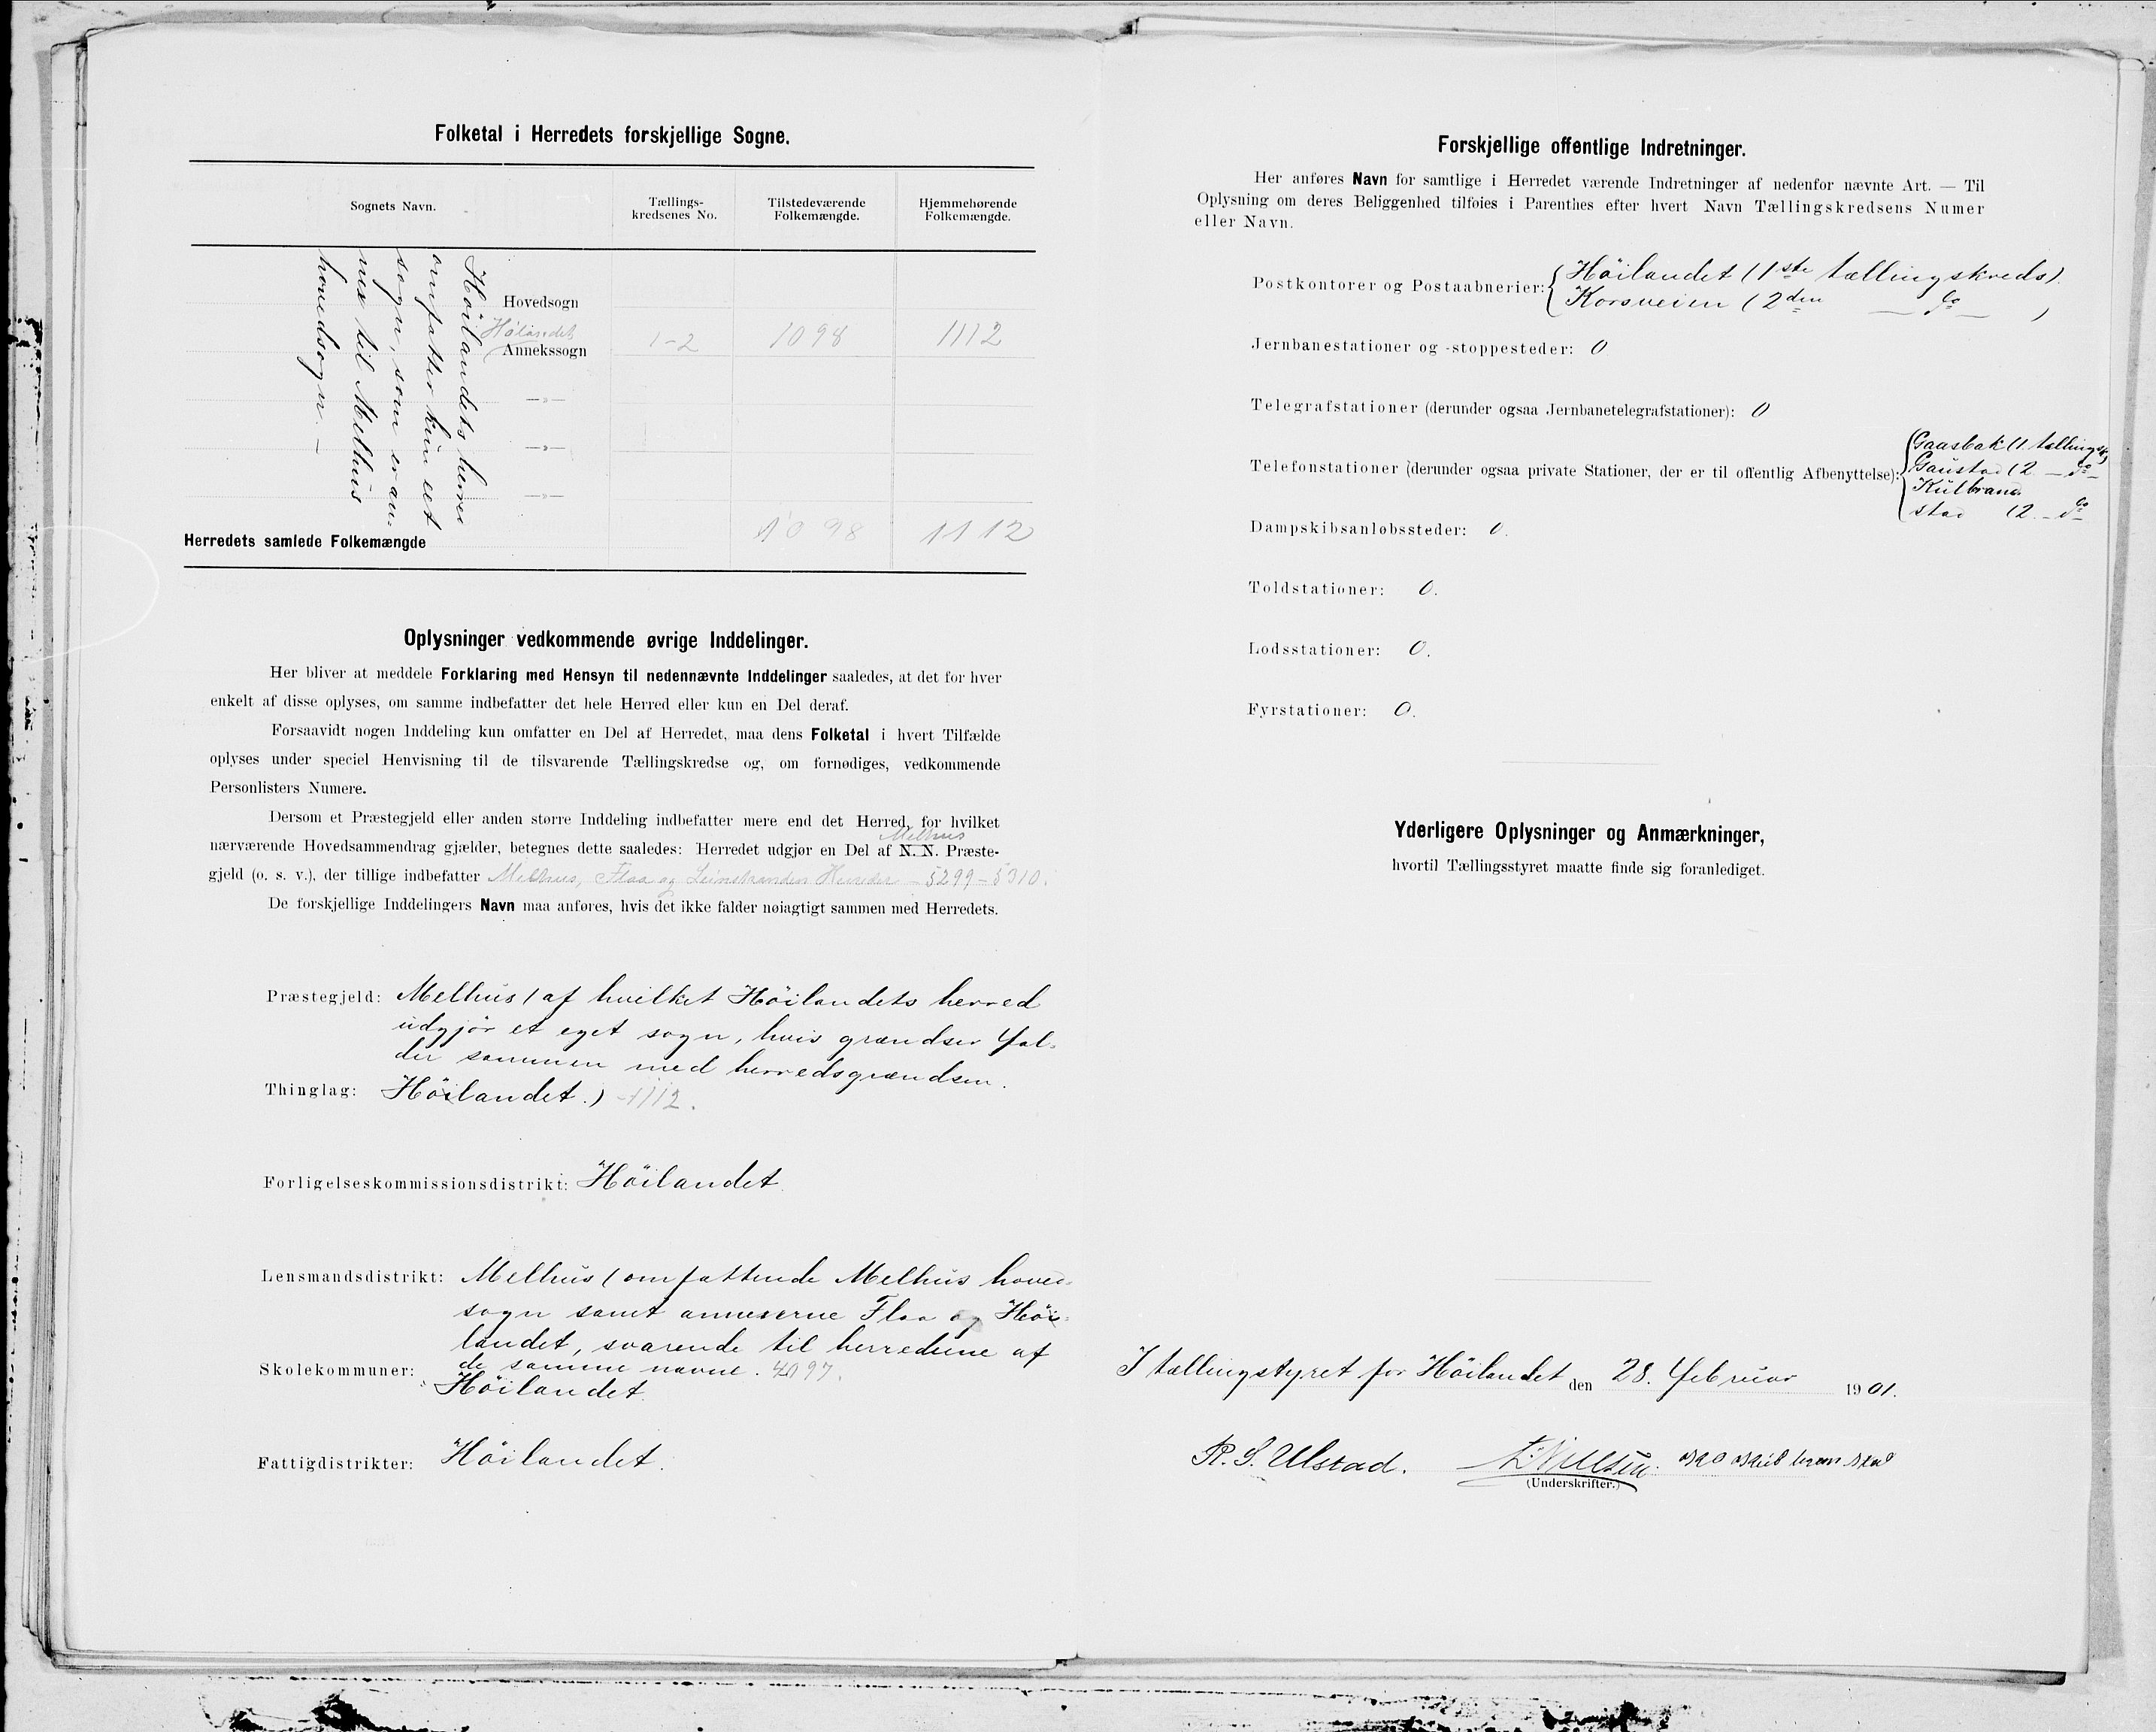 Folketal i Herredets forskjellige Sogne.
Sognets Navn.
Tællings-
kredsenes No.
Tilstedeværende
Folkemængde.
Hjemmehørende
Folkemængde.
Höilandets herred
omfatter kun eet
sogn, som er an-
nex til Melhus
hovedsogn. —
Hovedsogn
Hølandet
Annekssogn 1-2 1098 1112
—»—
—»—
—»—
Herredets samlede Folkemængde 1098 1112
Oplysninger vedkommende øvrige Inddelinger.
Her bliver at meddele Forklaring med Hensyn til nedennævnte Inddelinger saaledes, at det for hver
enkelt af disse oplyses, om samme indbefatter det hele Herred eller kun en Del deraf.
Forsaavidt nogen Inddeling kun omfatter en Del af Herredet, maa dens Folketal i hvert Tilfælde
oplyses under speciel Henvisning til de tilsvarende Tællingskredse og, om fornødiges, vedkommende
Personlisters Numere.
Dersom et Præstegjeld eller anden større Inddeling indbefatter mere end det Herred, for hvilket
Melhus
nærværende Hovedsammendrag gjælder, betegnes dette saaledes: Herredet udgjør en Del af N. N. Præste-
gjeld (o. s. v.), der tillige indbefatter Melhus, Flaa og Leinstrandens Herreder – 5299 – 5310.
De forskjellige Inddelingers Navn maa anføres, hvis det ikke falder nøiagtigt sammen med Herredets.
Præstegjeld: Melhus (af hvilket Höilandets herred
udgjör et eget sogn, hvis grændser fal-
der sammen med herredsgrændsen.
Thinglag: Höilandet.) 1112.
Forligelseskommissionsdistrikt: Höilandet
Lensmandsdistrikt: Melhus (omfattende Melhus hoved-
sogn samt annexerne Flaa og Höi-
landet, svarende til herrederne af
de samme navne. 4097.
Skolekommuner: Höilandet
Fattigdistrikter: Höilandet.
Forskjellige offentlige Indretninger.
Her anføres Navn for samtlige i Herredet værende Indretninger af nedenfor nævnte Art. — Til
Oplysning om deres Beliggenhed tilføies i Parenthes efter hvert Navn Tællingskredsens Numer
eller Navn.
Postkontorer og Postaabnerier: Höilandet (1ste tællingskreds).
Korsveien (2den — do — )
Jernbanestationer og -stoppesteder: 0
Telegrafstationer (derunder ogsaa Jernbanetelegrafstationer): 0
Telefonstationer (derunder ogsaa private Stationer, der er til offentlig Afbenyttelse): Gaasbak (1. tællingsk)
Gaustad (2 — do —
Kulbrand-
stad (2 — do
Dampskibsanløbssteder: 0.
Toldstationer: 0.
Lodsstationer: 0.
Fyrstationer: 0.
Yderligere Oplysninger og Anmærkninger,
hvortil Tællingsstyret maatte finde sig foranlediget.
I tællingstyret for Höilandet den 28. februar 1901.
R. S. Ulstad.
(Underskrifter.)